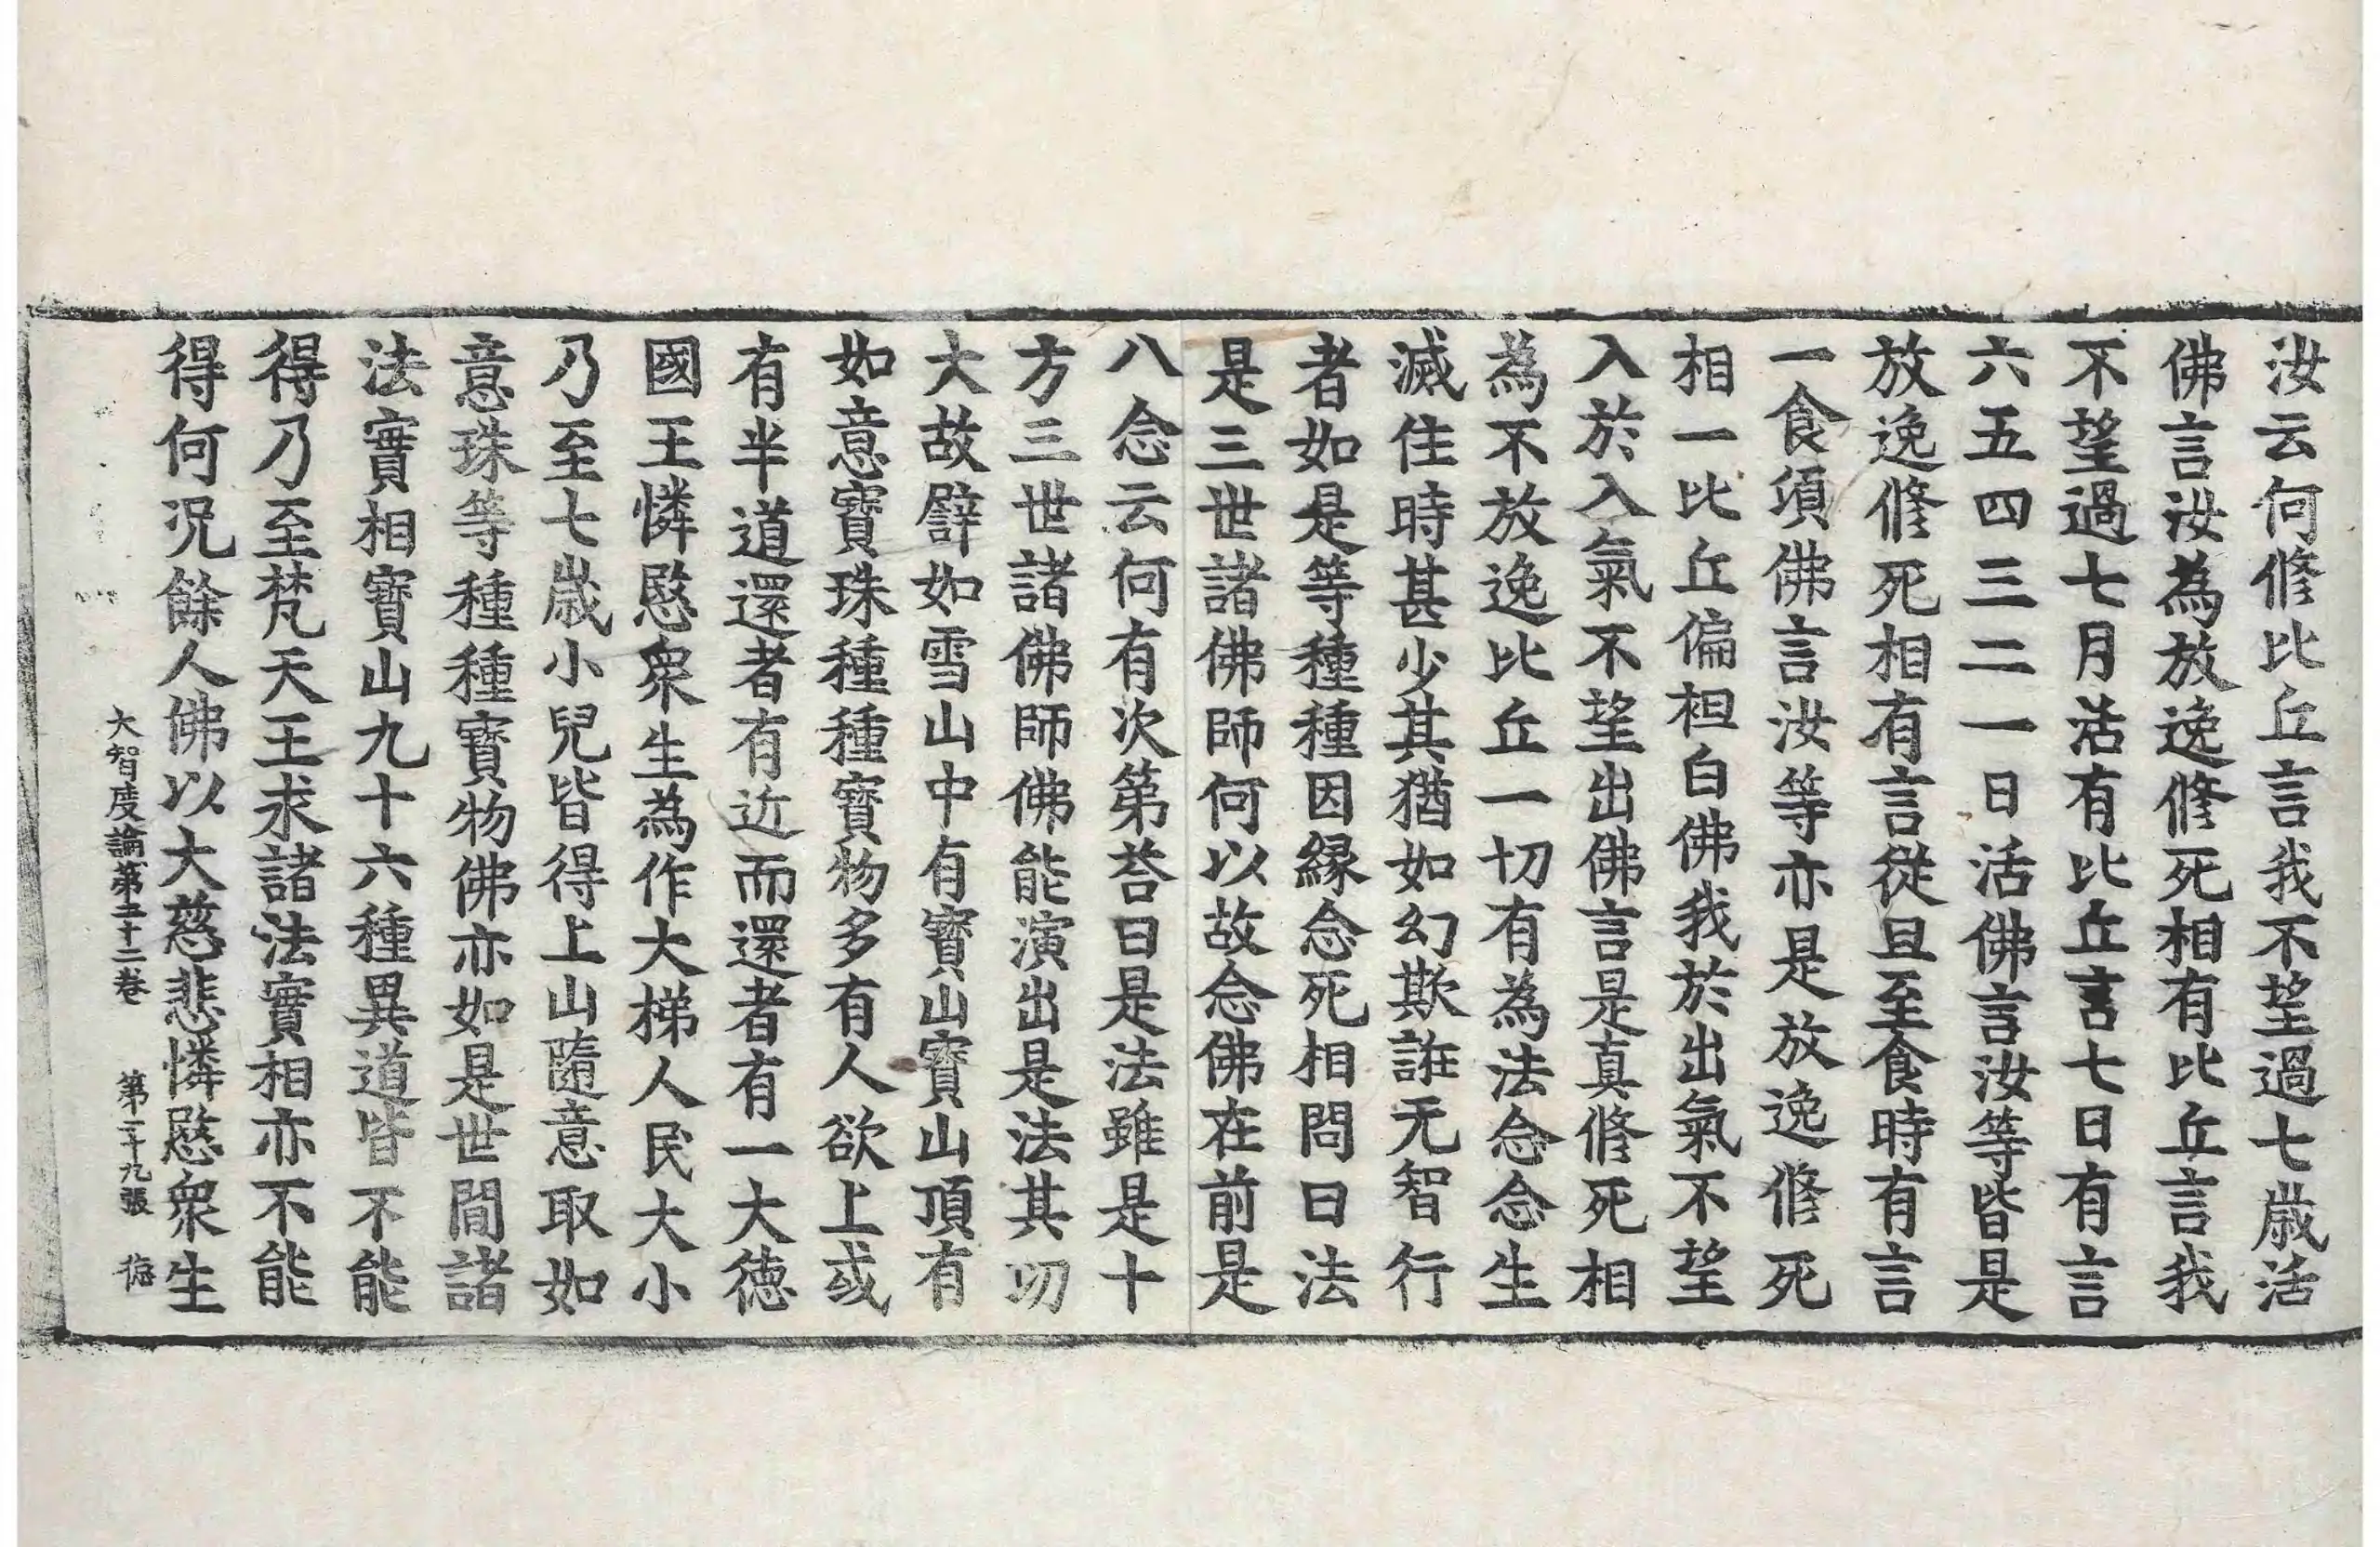 汝云何修比丘言我不望過七歲活
佛言汝為放逸修死相有比丘言我
不望過七月活有比丘言七日有言
六五四三二一日活佛言汝等皆是
放逸修死相有言從旦至食時有言
一食須佛言汝等亦是放逸修死
相一比丘偏袒白佛我於出氣不望
入於入氣不望出佛言是真修死相
為不放逸比丘一切有為法念念生
滅住時甚少其猶如幻欺誑无智行
者如是等種種因緣念死相問曰法
是三世諸佛師何以故念佛在前是
八念云何有次第荅曰是法雖是十
方三世諸佛師佛能演出是法其㓛
大故譬如雪山中有寶山寶山頂有
如意寶珠種種寶物多有人欲上或
有半道還者有近而還者有一大德
國王憐愍衆生為作大梯人民大小
乃至七歲小兒皆得上山隨意取如
意珠等種種寶物佛亦如是世間諸
法實相寶山九十六種異道皆不能
得乃至梵天王求諸法實相亦不能
得何況餘人佛以大慈悲憐愍衆生
大智度論第二十二卷 第二十九張